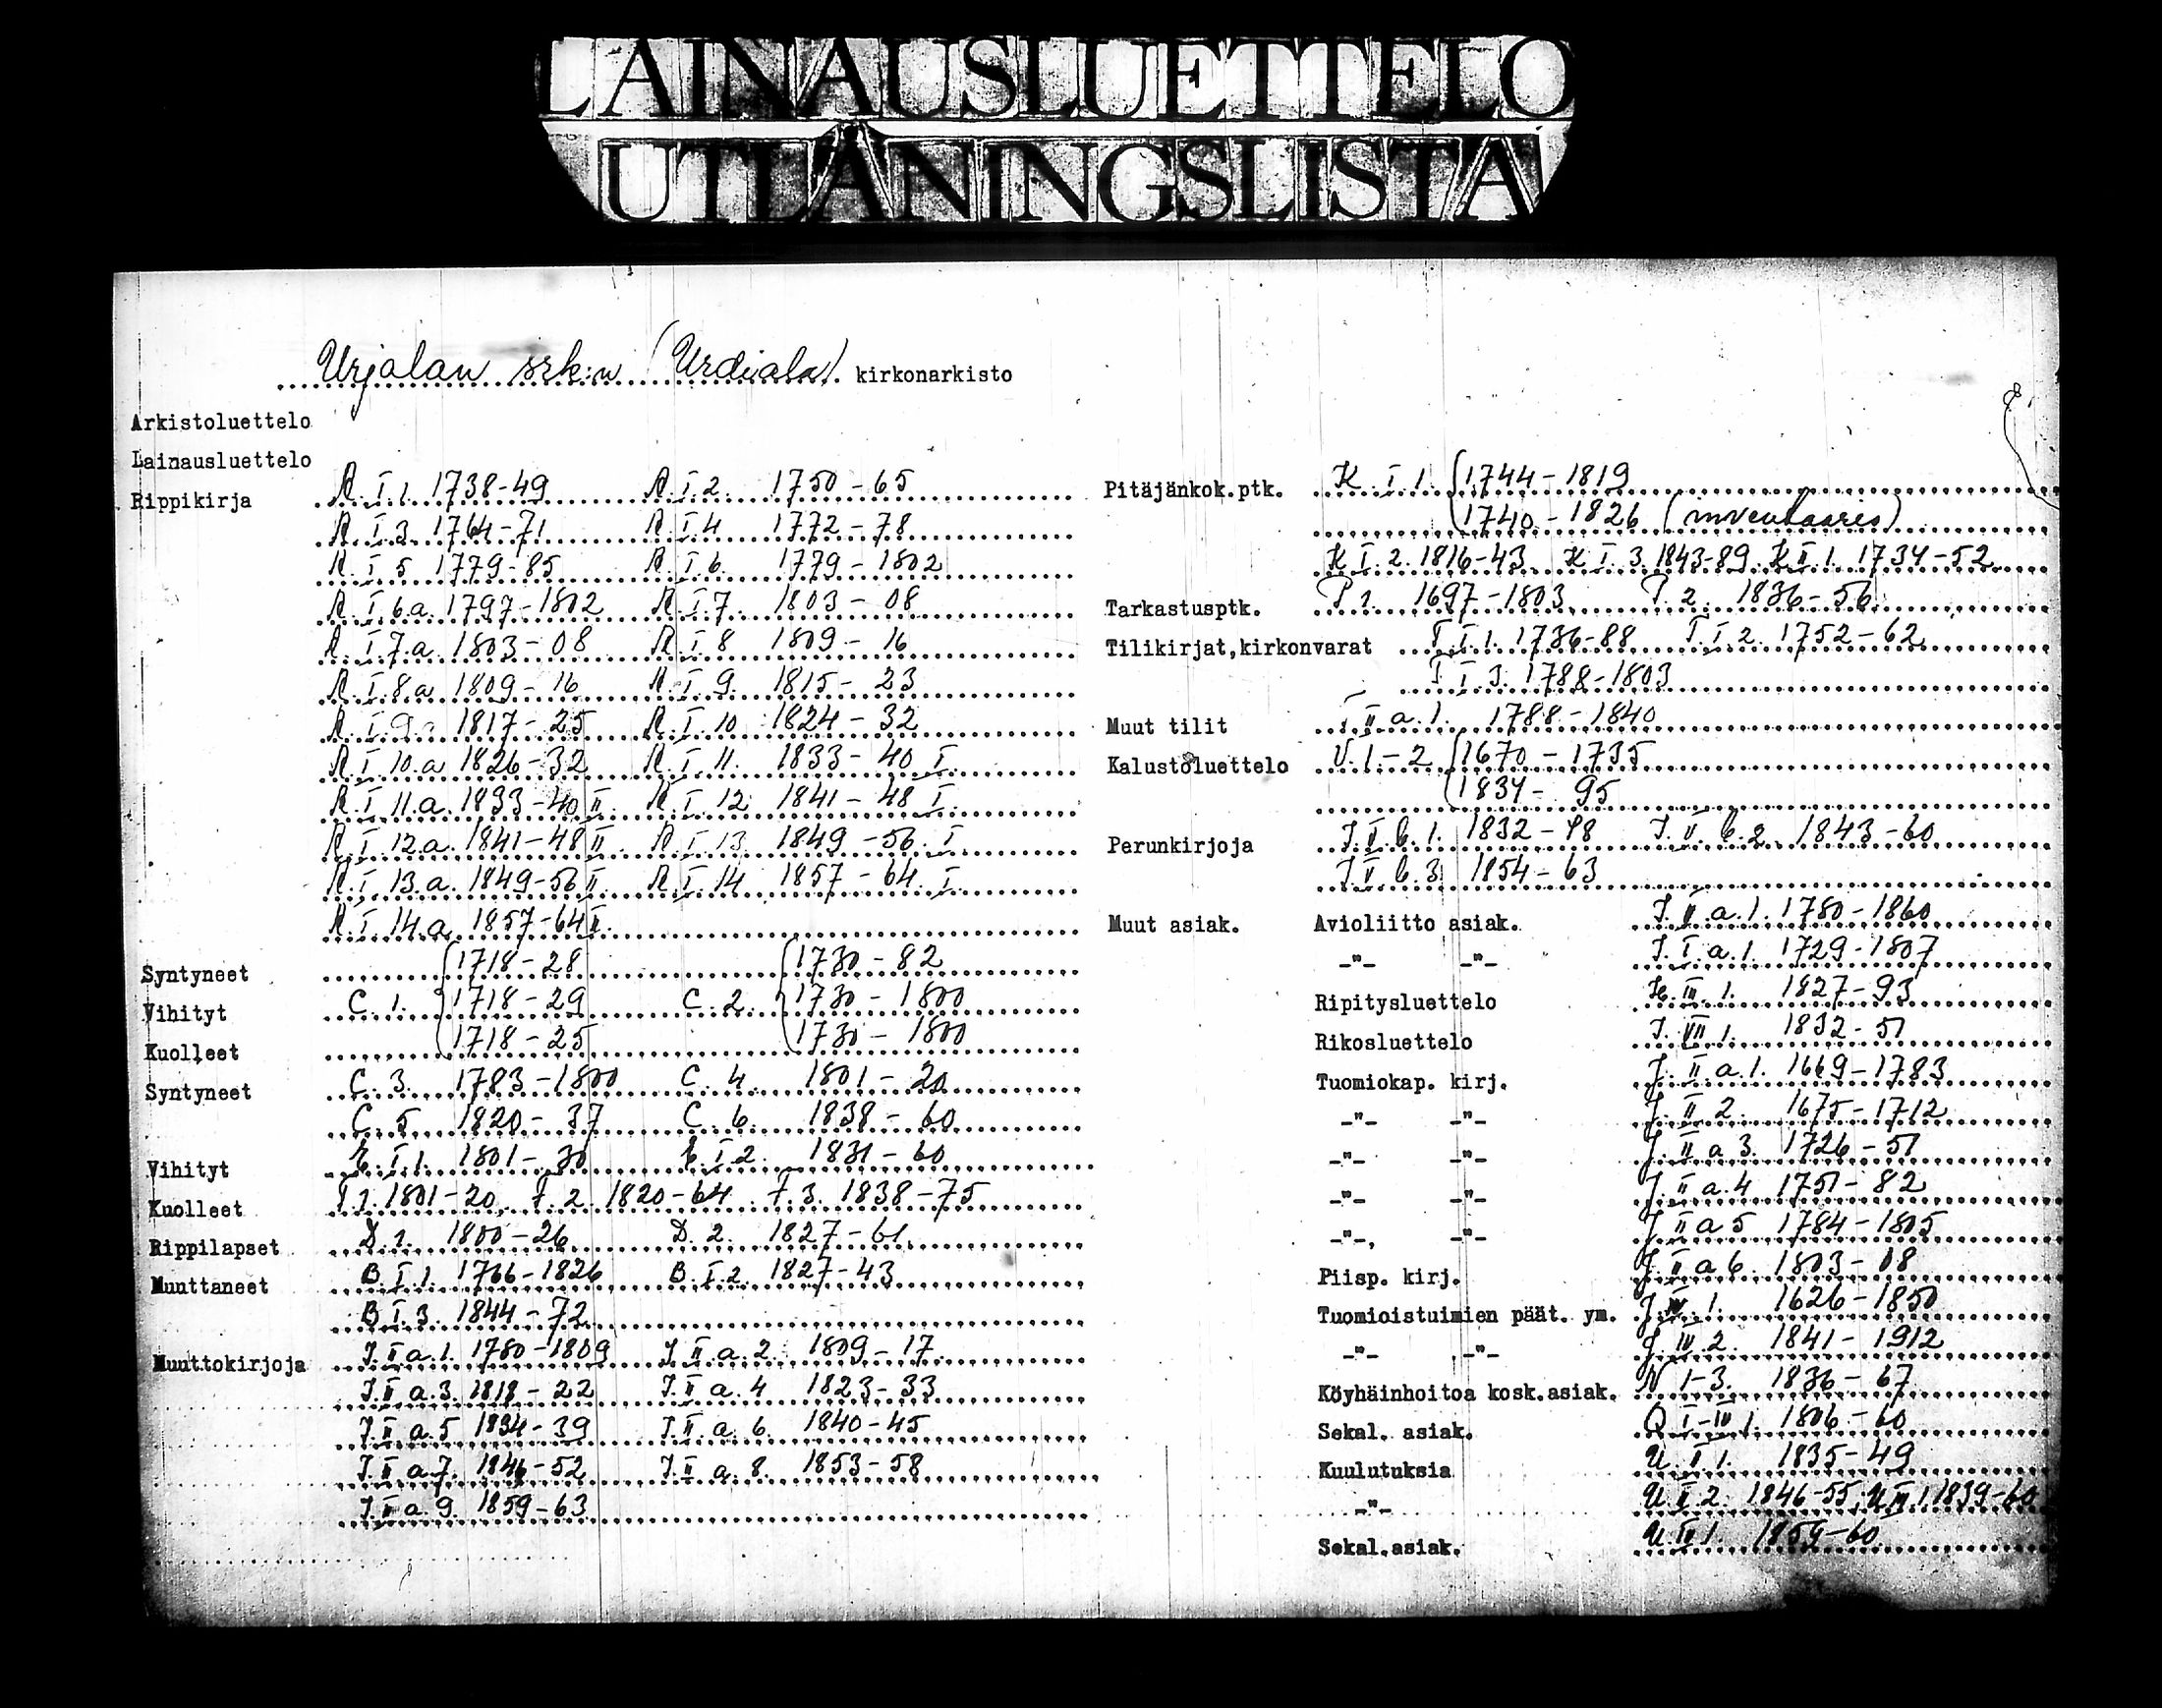 LAINAUSLUETTELO
UTLÅNINGSLISTA
Urjalan srk:n (Urdiala) kirkonarkisto
Arkistoluettelo
Lainausluettelo
Rippikirja R.I.1. 1738-49 R.I.2. 1750-65
R.I.3. 1764-71 R.I.4 1772-78
R.I.5 1779-85 R.I.6. 1779-1802
R.I.6.a. 1797-1802 R.I.7. 1803-08
R.I.7.a. 1803-08 R.I.8 1809-16
R.I.8.a 1809-16 R.I.9. 1815-23
R.I.9.a 1817-25 R.I.10 1824-32
R.I.10.a 1826-32 R.I.11. 1833-40 I.
R.I.11.a. 1833-40 II. R.I.12 1841-48 I.
R.I.12.a. 1841-48 II. R.I.13 1849-56. I
R.I.13.a. 1849-56 II. R.I.14 1857-64. I.
R.I.14.a. 1857-64 II.
Syntyneet 1718-28 1730-82
Vihityt C.1. 1718-29 C.2. 1730-1800
Kuolleet 1718-25 1730-1800
Syntyneet C.3. 1783-1800 C.4. 1801-20
C.5 1820-37 C.6. 1838-60
Vihityt E.I.1. 1801-30 E.I.2. 1831-60
Kuolleet F.1. 1801-20, F.2. 1820-64. F.3. 1838-75
Rippilapset D.1. 1800-26 D.2. 1827-61.
Muuttaneet B.I.1. 1766-1826 B.I.2. 1827-43
B.I.3. 1844-72
Muuttokirjoja J.II.a.1. 1780-1809 J.II.a.2. 1809-17.
J.II.a.3. 1818-22 J.II.a.4 1823-33
J.II.a.5 1834-39 J.II.a.6. 1840-45
J.II.a.7. 1846-52 J.II.a.8. 1853-58
J.II.a.9. 1859-63
Pitäjänkok.ptk. K.I.1. 1744-1819
1740-1826 (inventaares)
K.I.2. 1816-43. K.I.3. 1843-89. K.II.1. 1734-52
Tarkastusptk. P.1. 1697-1803. P.2. 1836-56
Tilikirjat,kirkonvarat T.I.1. 1736-88 T.I.2. 1752-62
T.I.3. 1788-1803
Muut tilit II.a.1. 1788-1840
Kalustoluettelo V.1-2 1670-1735
1834-95
Perunkirjoja J.V.b.1. 1832-48 J.V.b.2. 1843-60
J.V.b.3 1854-63
Muut asiak. Avioliitto asiak. J.II.a.1. 1780-1860
-"- -"- J.I.a.1. 1729-1807
Ripitysluettelo K.III.1. 1827-93
Rikosluettelo J.VII.1. 1832-51
Tuomiokap. kirj. J.II.a.1. 1669-1783
-"- -"- J.II.2. 1675-1712
-"- -"- J.II.a.3. 1726-51
-"- -"- J.II.a.4 1751-82
-"-, -"- J.II.a.5 1784-1805
Piisp. kirj. J.II.a.6. 1803-08
Tuomioistuimien päät. ym. J.IV.1. 1626-1850
-"- -"- J.IV.2. 1841-1912
Köyhäinhoitoa kosk.asiak. N 1-3. 1836-67
Sekal. asiak. Q I-IV 1. 1806-60
Kuulutuksia U.I.1. 1835-49
-"- U.II.2. 1846-55, U.III.1. 1839-60
Sekal.asiak. U.IV.1. 1854-60